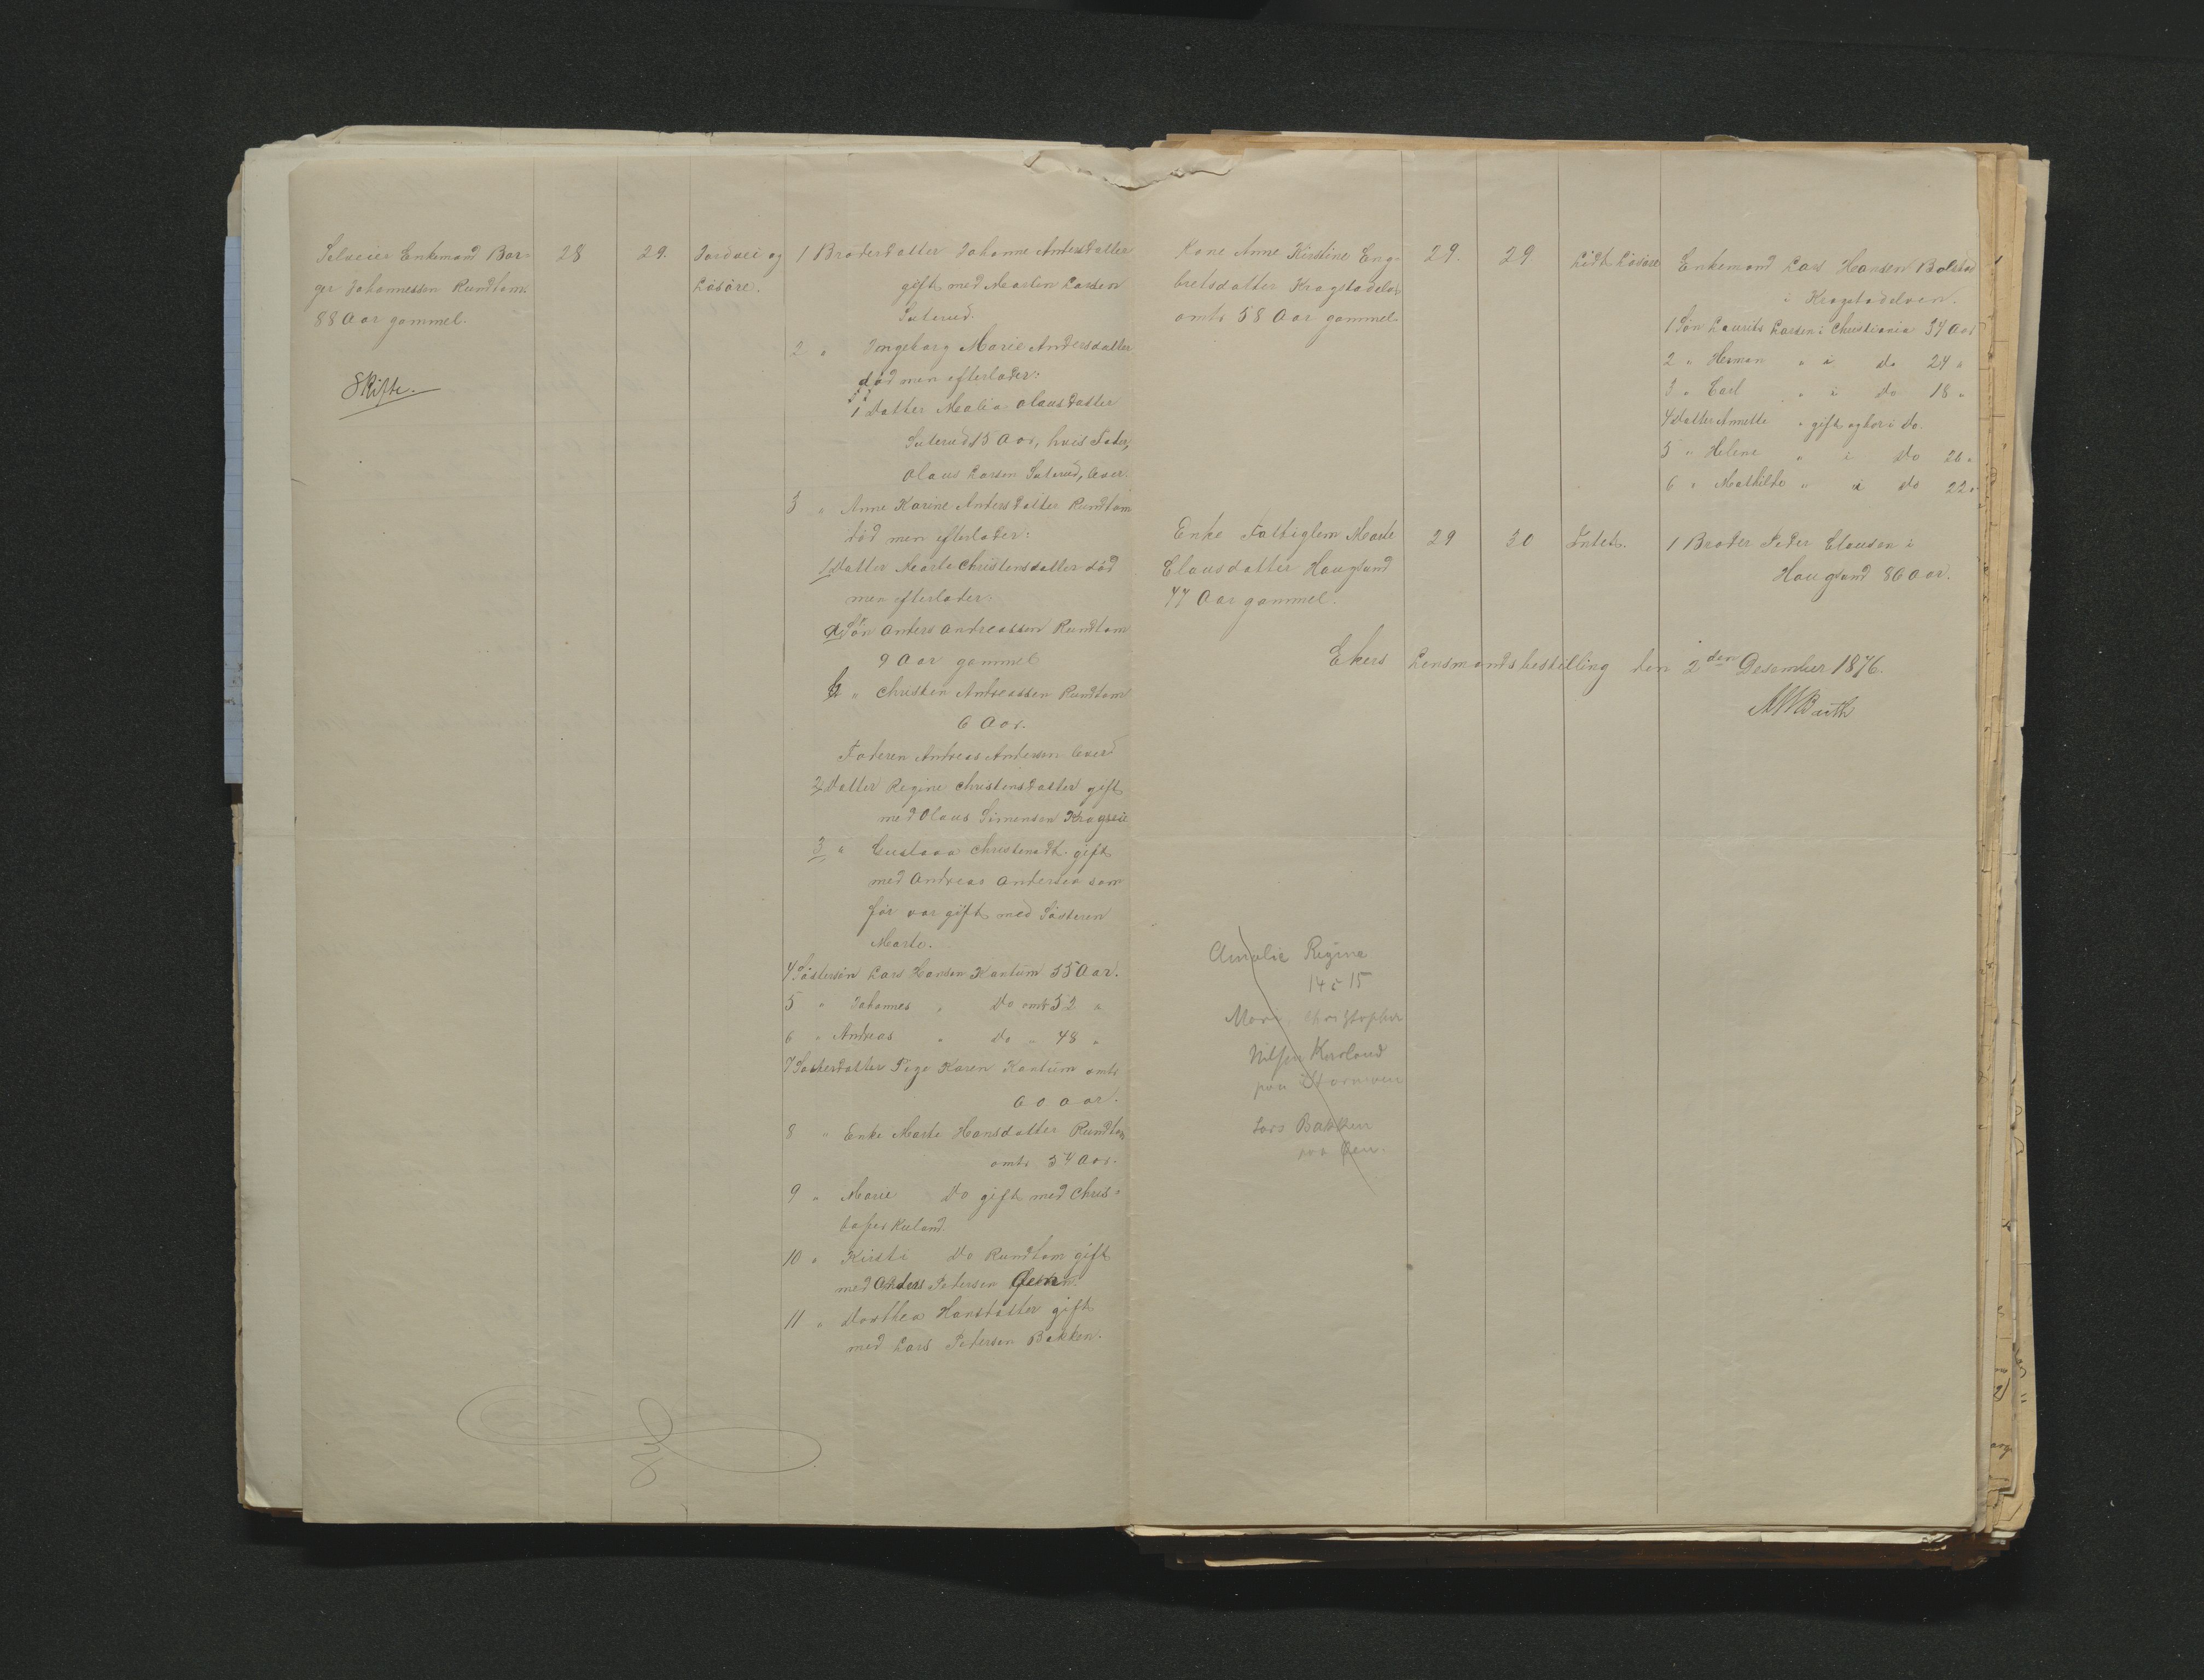 Selveier Enkemand Bor-
ger Johannessen Rundtom
88 Aar gammel.
Skifte.
28
29.
Jordvei og
Løsøre.
1 Broderdatter Johanne Andersdatter
gift med Martin Larsen
Saterud.
2 " Ingeborg Marie Andersdatter
død men efterlader:
1 Datter Malia Olausdatter
Saterud 15 Aar, hvis Fader,
Olaus Larsen Saterud, lever.
3 " Anne Karine Andersdatter Rundtom
død men efterlader:
1 Datter Marte Christensdatter død
men efterlader:
a, Søn Anders Andreassen Rundtom
9 Aar gammel
b " Christen Andreassen Rundtom
6 Aar.
Faderen Andreas Andersen lever
2, Datter Regine Christensdatter gift
med Olaus Simensen Kragseie
3 " Gustava Christensdt. gift
med Andreas Andersen som
før var gift med Søsteren
Marte.
4 Søstersøn Lars Hansen Kantum 55 Aar.
5 " Johannes " Do omtr 52 "
6 " Andreas " Do " 48 "
7 Søsterdatter Pige Karen Kantum omtr
60 Aar.
8 " Enke Marte Hansdatter Rundtom
omtr. 54 Aar.
9 " Marie Do gift med Chris-
tofer
10 " Kirsti Do Rundtom gift
med Anders Petersen Øen.
11 " Dorthea Hansdatter gift
med Lars Petersen Bakken.
Kone Anne Kirstine Eng-
bretsdatter Kragstadelv
omtr 58 Aar gammel
29.
29
Lidt Løsøre
Enkemand Lars Hansen Bolstad
i Kragstadelven.
1 Søn Laurits Larsen i Christiania 34 Aar
2 " Herman " i do 24 "
3 " Carl " i Do 18 "
4 Datter Annette " gift og bor i Do.
5 " Helene " i Do 26 "
6 " Mathilde " i Do 22 "
Enke Fattiglem Marte
Clausdatter Haugsund
77 Aar gammel.
29
30
Intet.
1 Broder Peder Clausen i
Haugsund 80 Aar.
Ekers Lensmandsbestilling den 2den Desember 1876.
Amalie Regine
14 à 15
Mari, Christopher
Nilsen
paa
Lars Bakken
paa Øen.